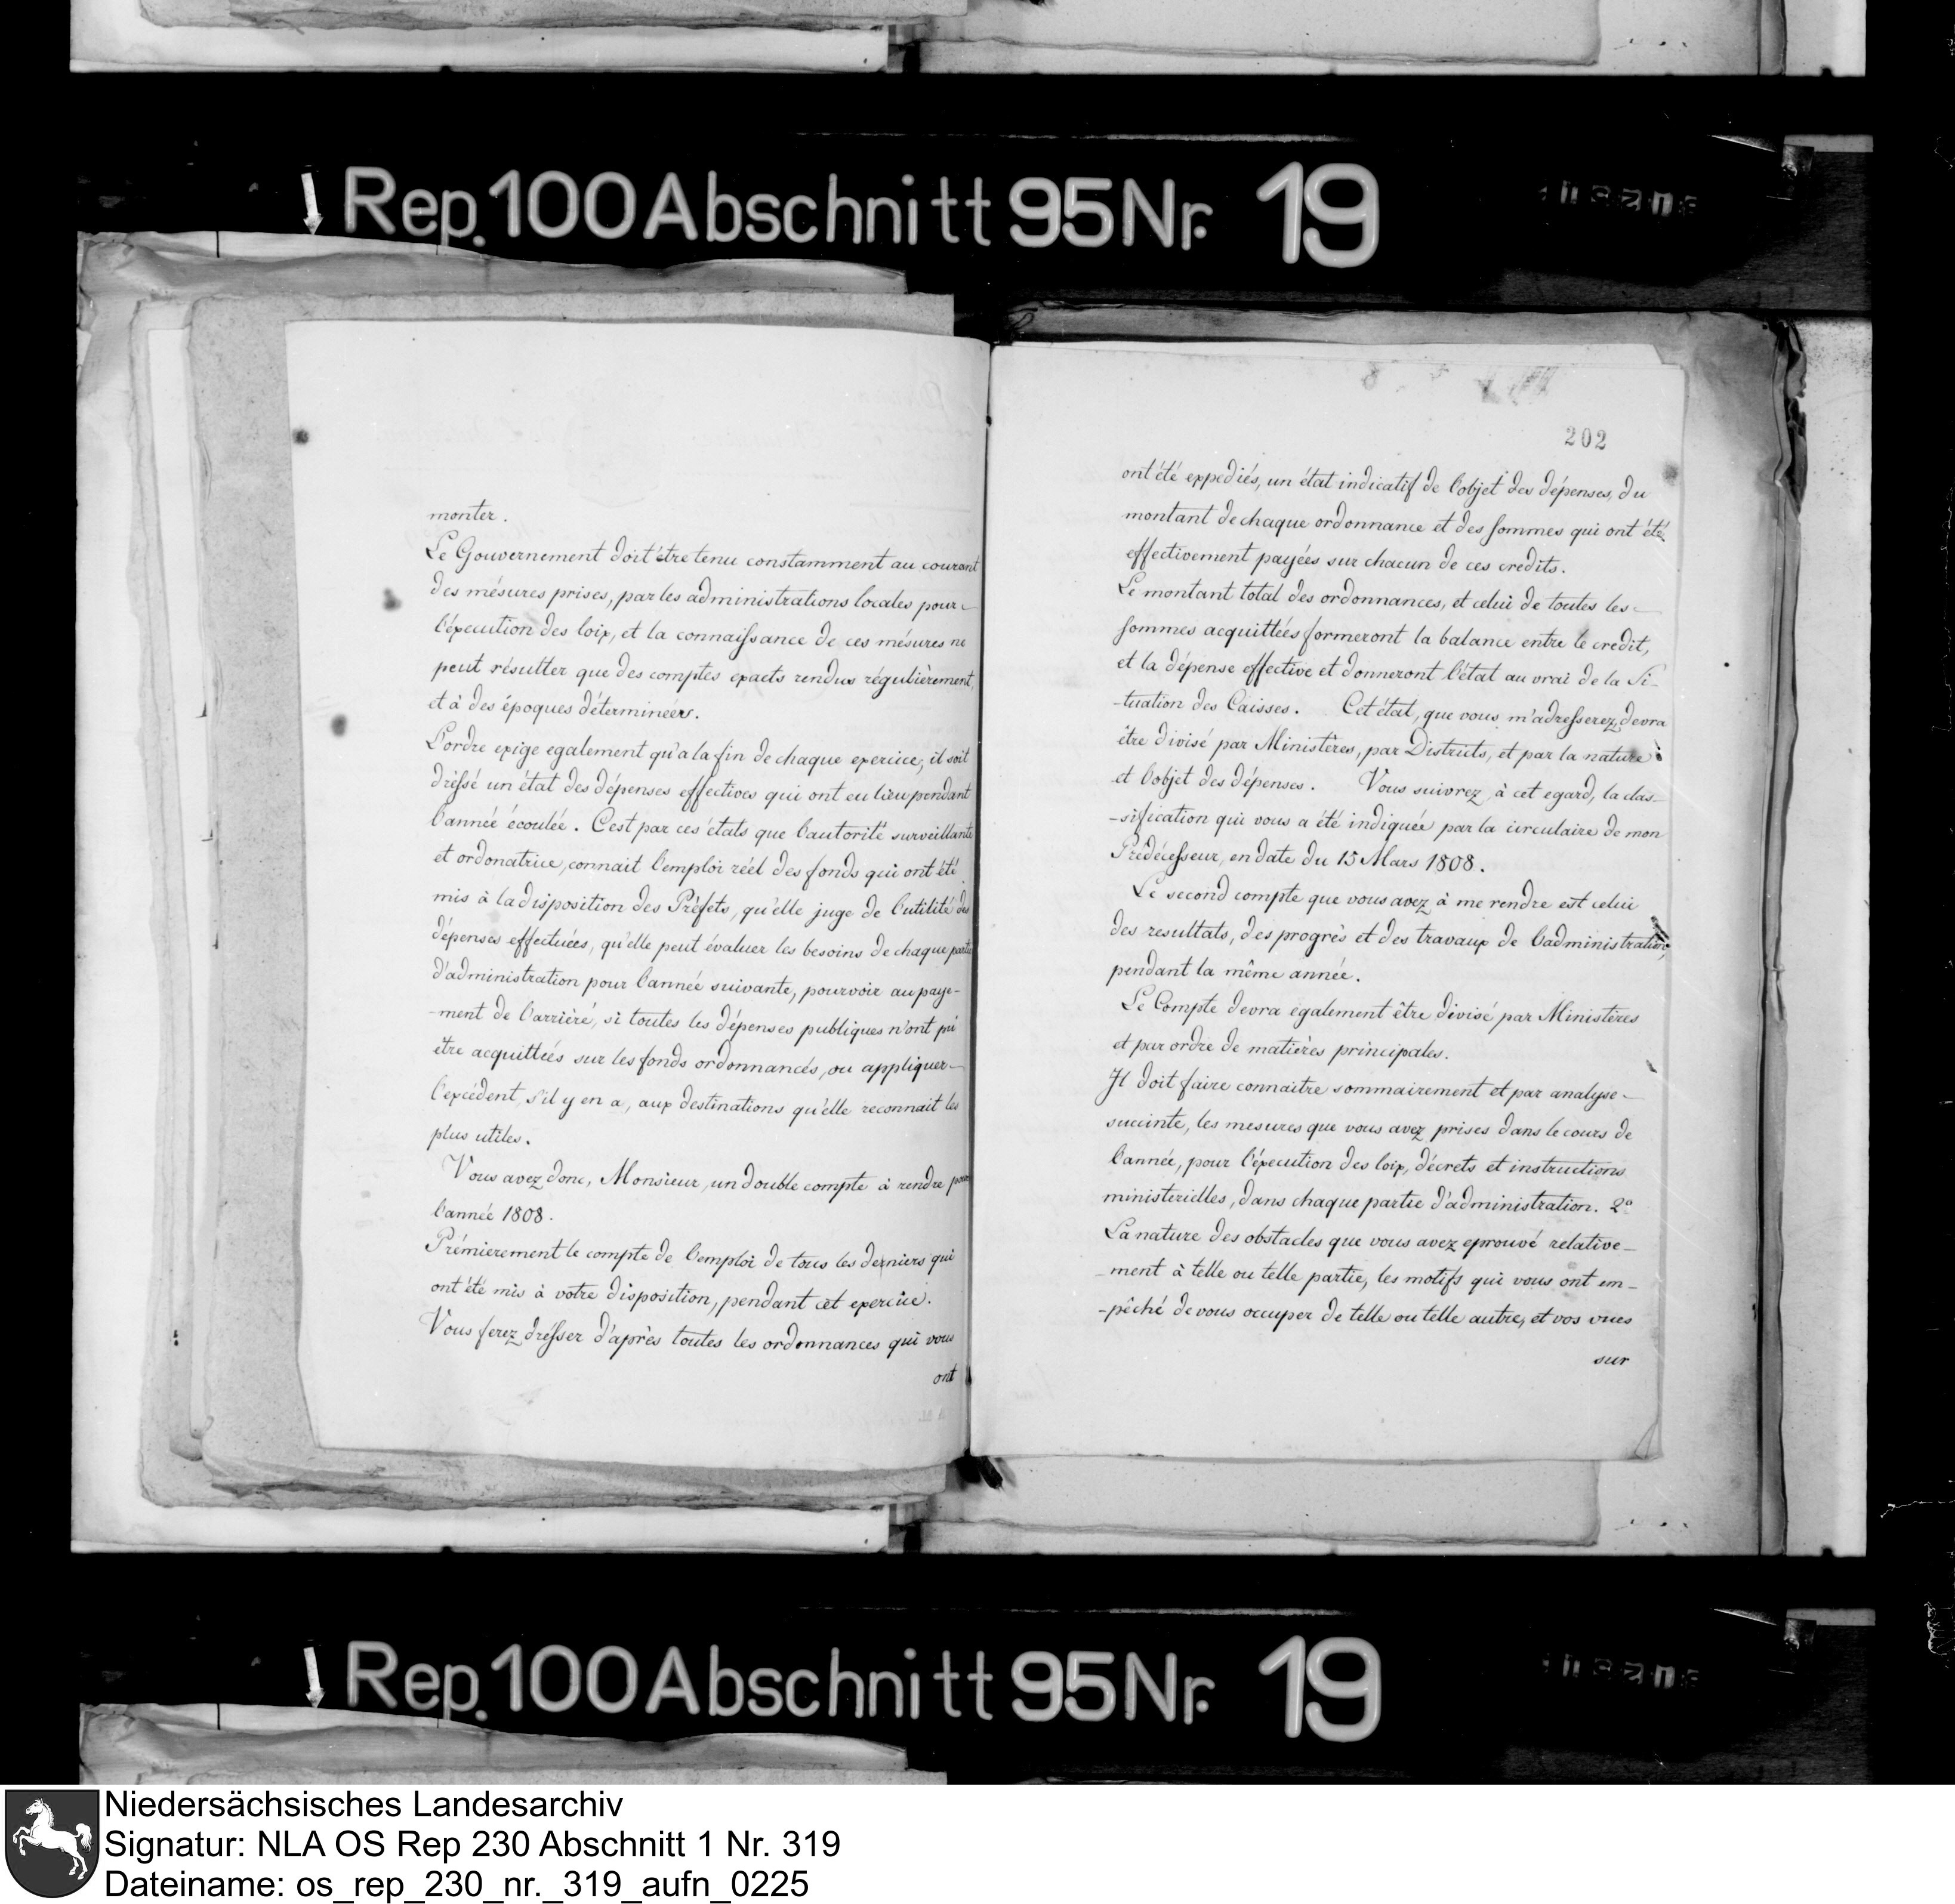 Rep. 100 Abschnitt 95 Nr. 19
monter.
Le Gouvernement doit être tenu constamment au courant
des mésures prises, par les administrations locales pour
l'éxecution des loix, et la connaissance de ces mésures ne
peut résulter que des comptes exacts rendus régulièrement,
et à des époques détermineés.
L'ordre exige egalement qu'a la fin de chaque exercice, il soit
dréssé un état des dépenses effectives qui ont eu lieu pendant
l'année écoulée. C'est par ces états que l'autorité surveillante
et ordonatrice, connait l'emploi réel des fonds qui ont été
mis à la disposition des Préfets, qu'elle juge de l'utilité des
dépenses effectuées, qu'elle peut évaluer les besoins de chaque partie
d'administration pour l'année suivante, pourvoir au paye-
-ment de l'arriéré, si toutes les dépenses publiques n'ont pû
être acquittées sur les fonds ordonnancés, ou appliquer
l'excédent, s'il y en a, aux destinations qu'elle reconnait les
plus utiles.
Vous avez donc, Monsieur, un double compte à rendre pour
l'année 1808.
Prémierement le compte de l'emploi de tous les derniers qui
ont été mis à votre disposition, pendant cet exercice.
Vous ferez drésser d'après toutes les ordonnances qui vous
ont
202
ont été expediés, un état indicatif de l'objet des dépenses, du
montant de chaque ordonnance et des sommes qui ont été
effectivement payées sur chacun de ces credits.
Le montant total des ordonnances, et celui de toutes les
sommes acquittées formeront la balance entre le credit,
et la dépense effective et donneront l'état au vrai de la Si-
-tuation des Caisses. Cet état, que vous m'adresserez, devra
être divisé par Ministères, par Districts, et par la nature
et l'objet des dépenses. Vous suivrez, à cet egard, la clas-
-sification qui vous a été indiquée par la circulaire de mon
Prédécesseur, en date du 15 Mars 1808.
Le second compte que vous avez à me rendre est celui
des resultats, des progrès et des travaux de l'administration,
pendant la même année.
Le Compte devra egalement être divisé par Ministères
et par ordre de matières principales.
Il doit faire connaitre sommairement et par analyse
succinte, les mesures que vous avez prises dans le cours de
l'année, pour l'éxecution des loix, décrets et instructions
ministerielles, dans chaque partie d'administration. 2º
La nature des obstacles que vous avez eprouvé relative-
-ment à telle ou telle partie, les motifs qui vous ont em-
-pêché de vous occuper de telle ou telle autre, et vos vues
sur
Rep. 100 Abschnitt 95 Nr. 19
Niedersächsisches Landesarchiv
Signatur: NLA OS Rep 230 Abschnitt 1 Nr. 319
Dateiname: os_rep_230_nr._319_aufn_0225